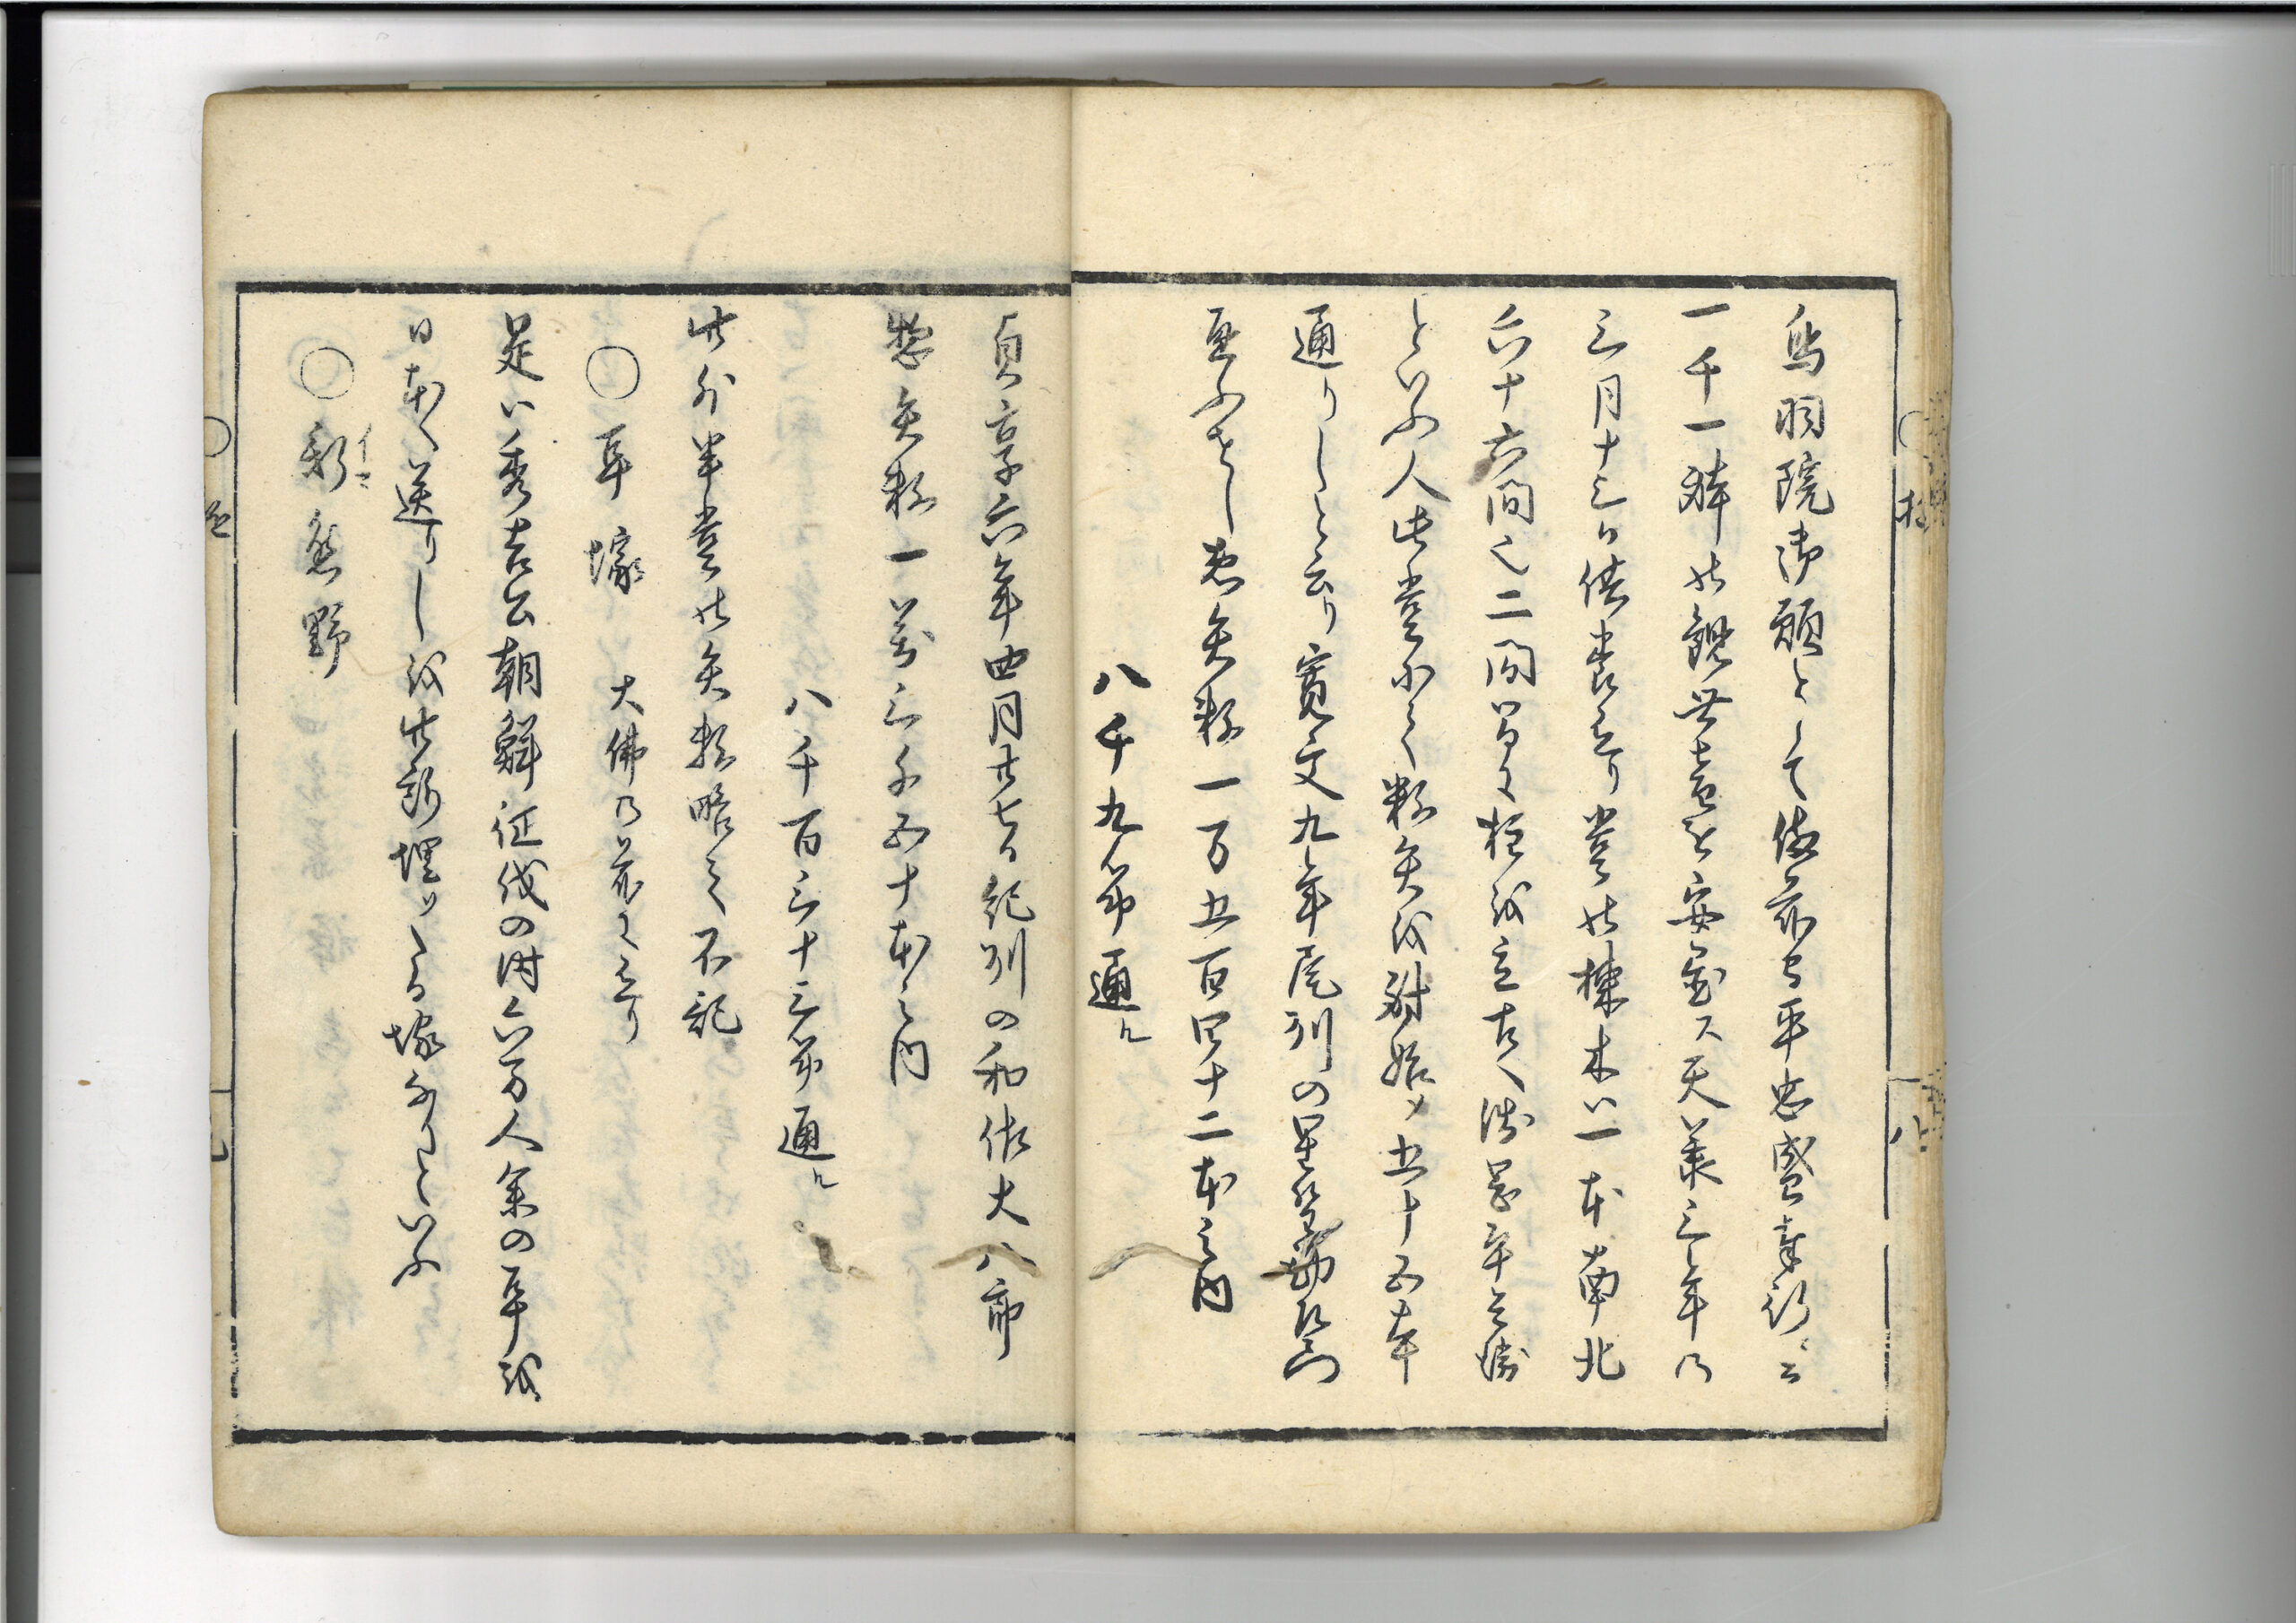 鳥羽院御願として備前守平忠盛奉行ニ
一千一躰の観世音を安置ス天業三年の
三月十三日供養有り堂の棟木ハ一本南北
六十六間也二間ごとに柱を立古へ浅岡平兵衛
といふ人此堂にて数矢を射始メ五十四本
通りしと云り寛文九年尾州の星野勘左衛門
惣矢数一万五百四十二本之内
八千九筋通ル
貞享六年四月廿七日紀州の和佐大八郎
惣矢数一万三千五十本之内
八千百三十三筋通ル
此外半堂の矢数略之不記
○耳塚 大佛の前に有り
是ハ秀吉公朝鮮征伐の時六万人余の耳を
日本へ送りしを此所埋りたる塚なりといふ
○新熊野
イマ
八